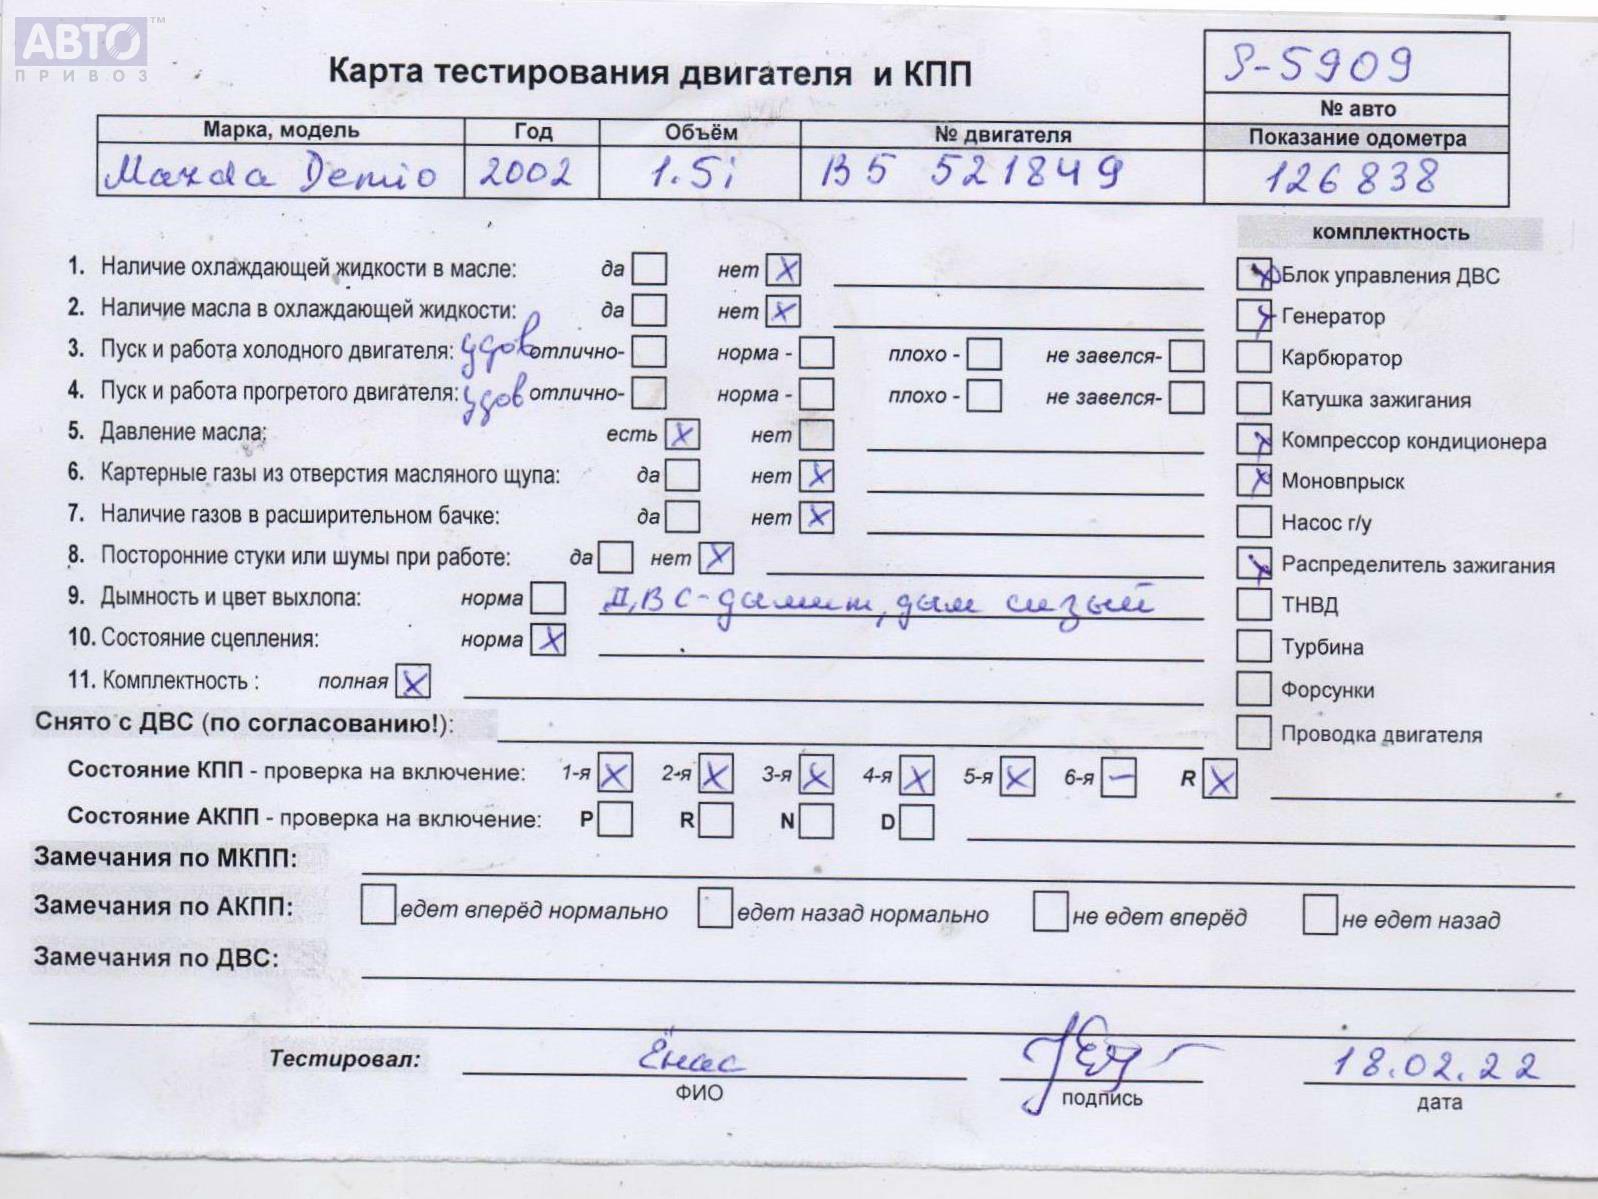 АВТО™
ПРИВОЗ
Карта тестирования двигателя и КПП
S-5909
№ авто
Марка, модель Год Объём № двигателя Показание одометра
Mazda Demio 2002 1.5i B5 521849 126838
комплектность
1. Наличие охлаждающей жидкости в масле: да нет x
Блок управления ДВС
2. Наличие масла в охлаждающей жидкости: да нет x
Генератор
3. Пуск и работа холодного двигателя: удов отлично- норма - плохо - не завелся-
Карбюратор
4. Пуск и работа прогретого двигателя: удов отлично- норма - плохо - не завелся-
Катушка зажигания
5. Давление масла: есть x нет
Компрессор кондиционера
6. Картерные газы из отверстия масляного щупа: да нет x
Моновпрыск
7. Наличие газов в расширительном бачке: да нет x
Насос г/у
8. Посторонние стуки или шумы при работе: да нет x
Распределитель зажигания
9. Дымность и цвет выхлопа: норма ДВС-дымит, дым сизый
ТНВД
10. Состояние сцепления: норма x
Турбина
11. Комплектность : полная x
Форсунки
Снято с ДВС (по согласованию!):
Проводка двигателя
Состояние КПП - проверка на включение: 1-я x 2-я x 3-я x 4-я x 5-я x 6-я – R x
Состояние АКПП - проверка на включение: P R N D
Замечания по МКПП:
Замечания по АКПП: едет вперёд нормально едет назад нормально не едет вперёд не едет назад
Замечания по ДВС:
Тестировал: Ёнас 18.02.22
ФИО подпись дата